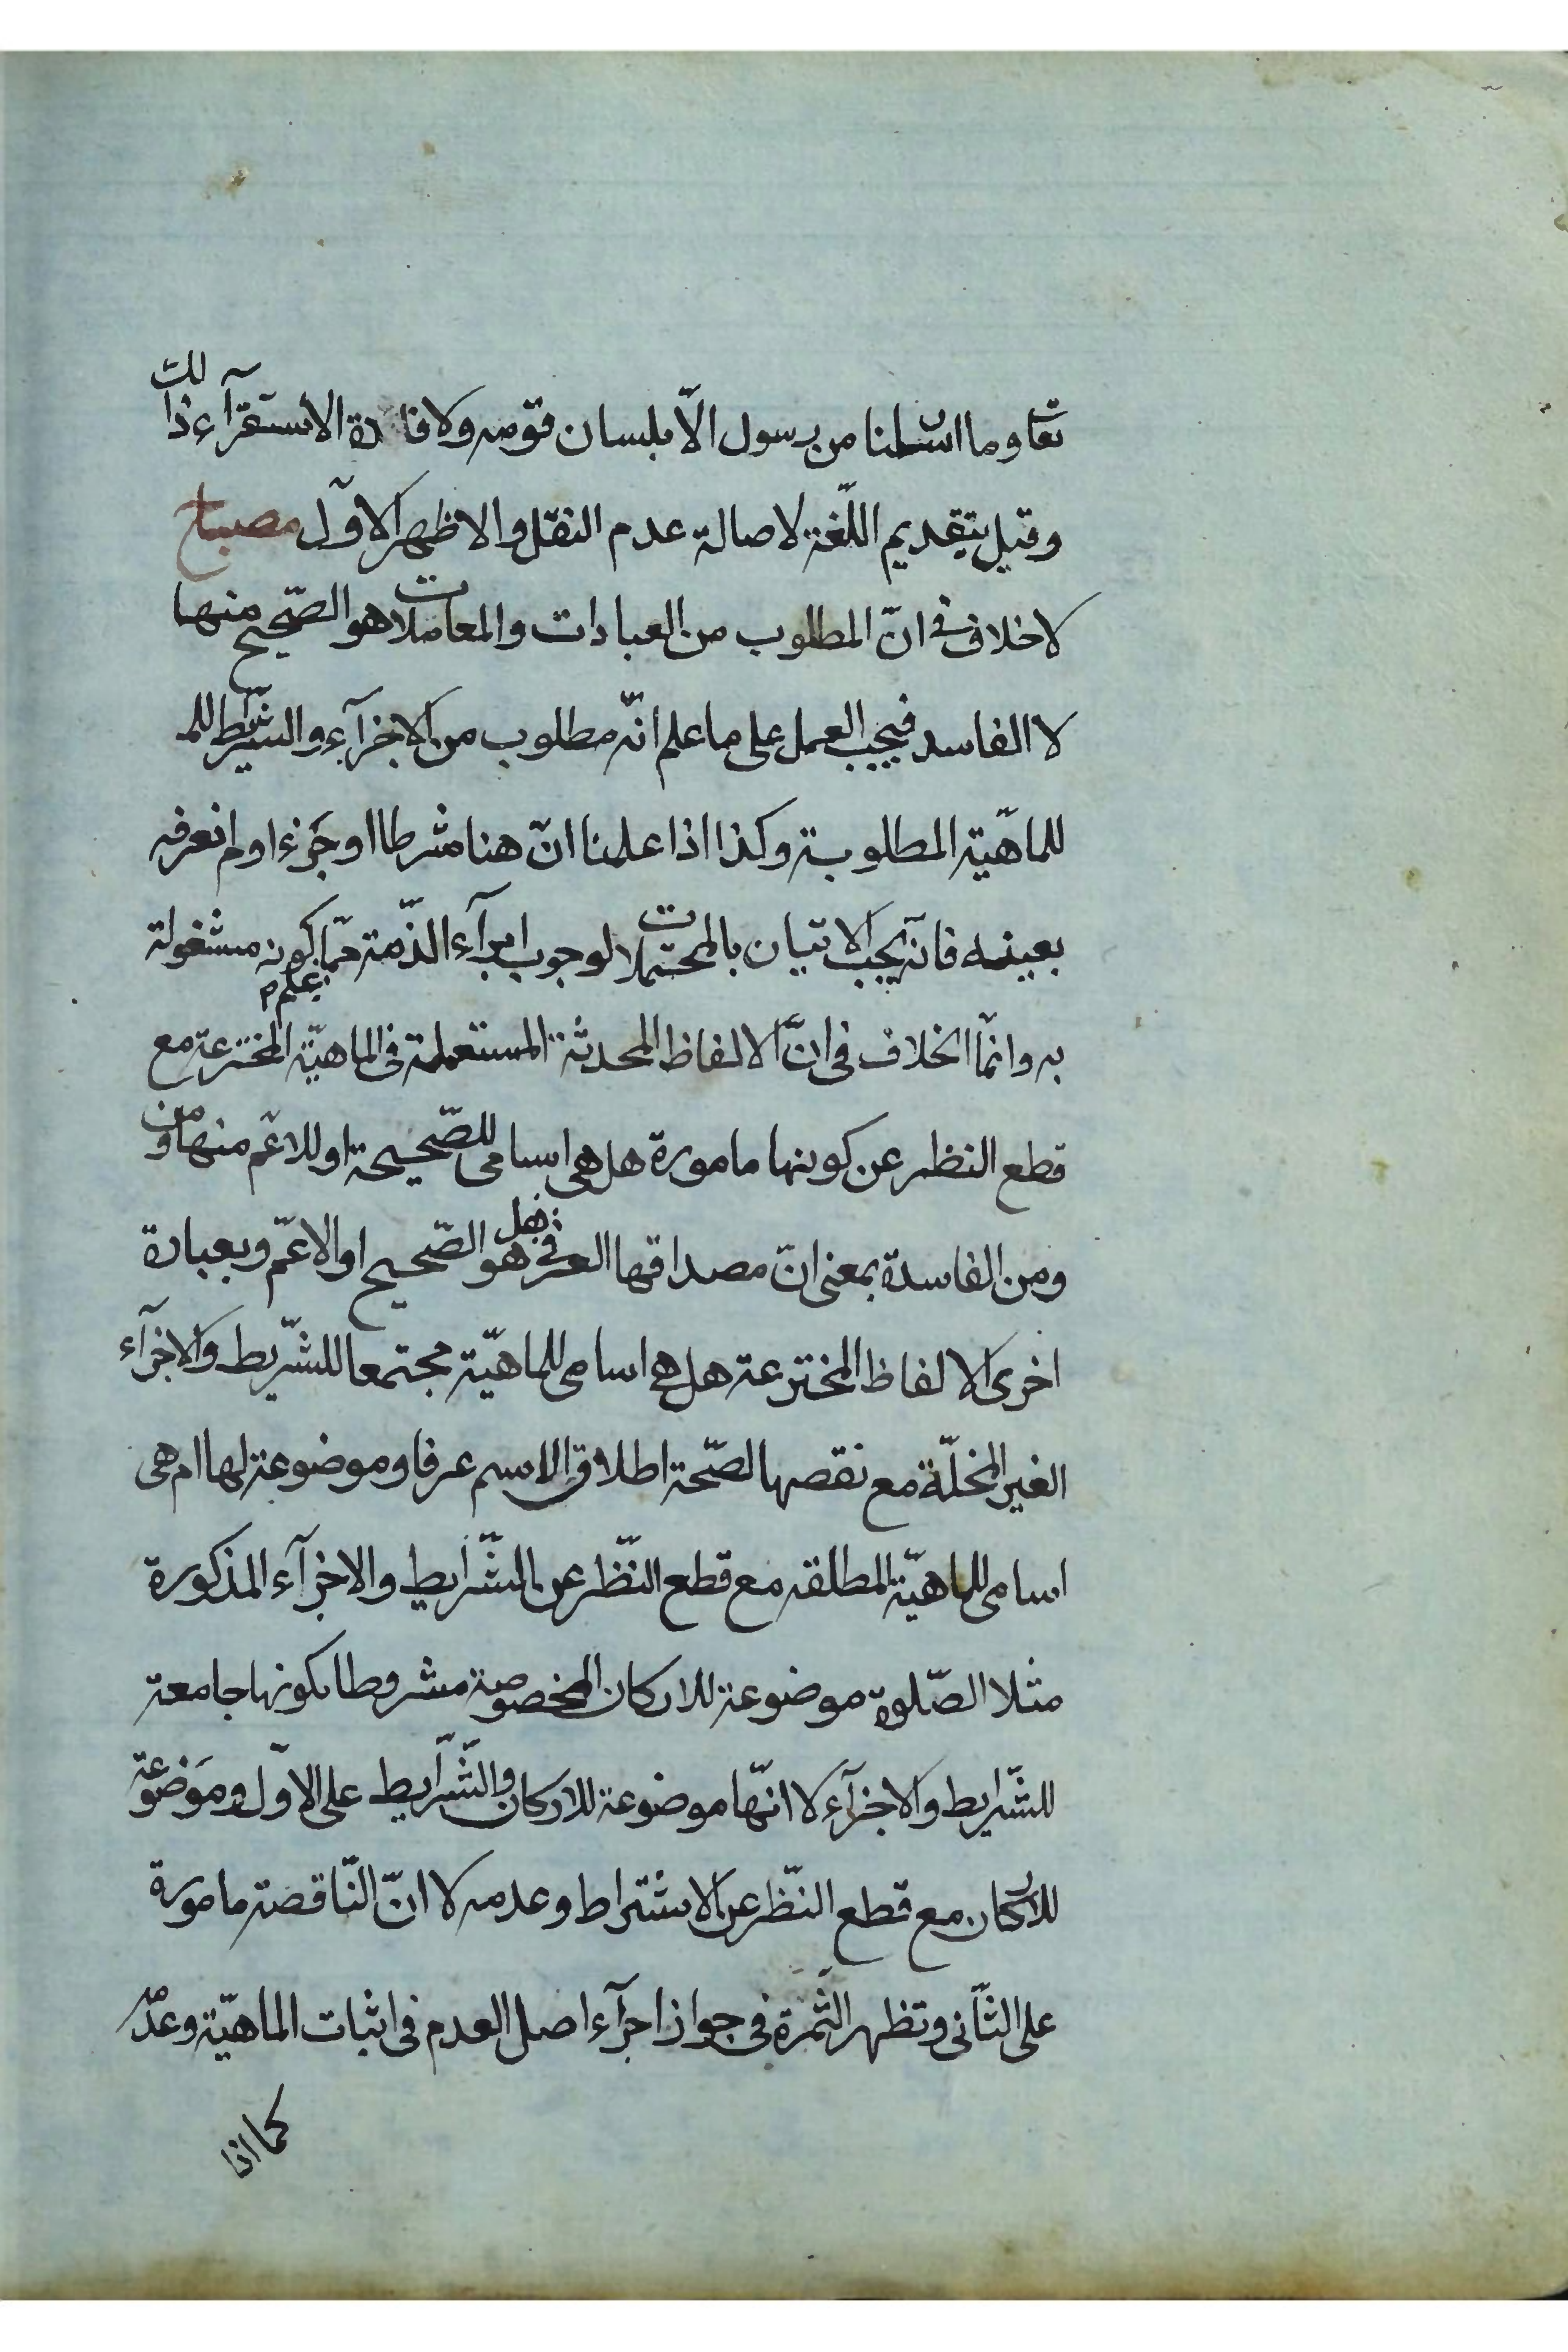 تعا وما ارسلنا من رسول الّا بلسان قومه ولافادة الاستقرآء ذلك
وقيل بتقديم اللّغة لاصالة عدم النقل والاظهر الاوّل مصباح
لا خلاف في انّ المطلوب من العبادات والمعاملات هو الصّحيح منها
لا الفاسد فيجب العمل على ما علم انّه مطلوب من الاجزآء والشّرايط للم
للماهيّة المطلوبة وكذا اذا علمنا انّ هنا شرطا او جزءا ولم نعرفه
بعينه فانّه يجب الاتيان بالمحتملات لوجوب ابرآء الذّمة عمّا يعلم كونه مشغولة
به وانّما الخلاف في انّ الالفاظ المحدثة المستعملة في الماهيّة المخترعة مع
قطع النظر عن كونها مامورة هل هي اسامى للصّحيحة او للاعّم منها ومن
ومن الفاسدة بمعنى انّ مصداقها العرفي هل هو الصّحيح او الاعّم وبعبارة
اخرى الالفاظ المخترعة هل هي اسامى للماهيّة مجتمعا للشّرايط والاجزآء
الغير المخلّة مع نقصها لصّحة اطلاق الاسم عرفا وموضوعة لها ام هى
اسامى للماهيّة المطلقه مع قطع النّظر عن الشّرايط والاجزآء المذكورة
مثلا الصّلوة موضوعة للاركان المخصوصة مشروطا بكونها جامعة
للشّرايط والاجزآء لا انّها موضوعة للاركان والشّرايط على الاوّل وموضوعة
للاركان مع قطع النّظر عن الاشتراط وعدمه لا انّ النّاقصة مامورة
على الثّانى وتظهر الثّمرة في جواز اجرآء اصل العدم في اثبات الماهيّة وعدمه
كما اذا